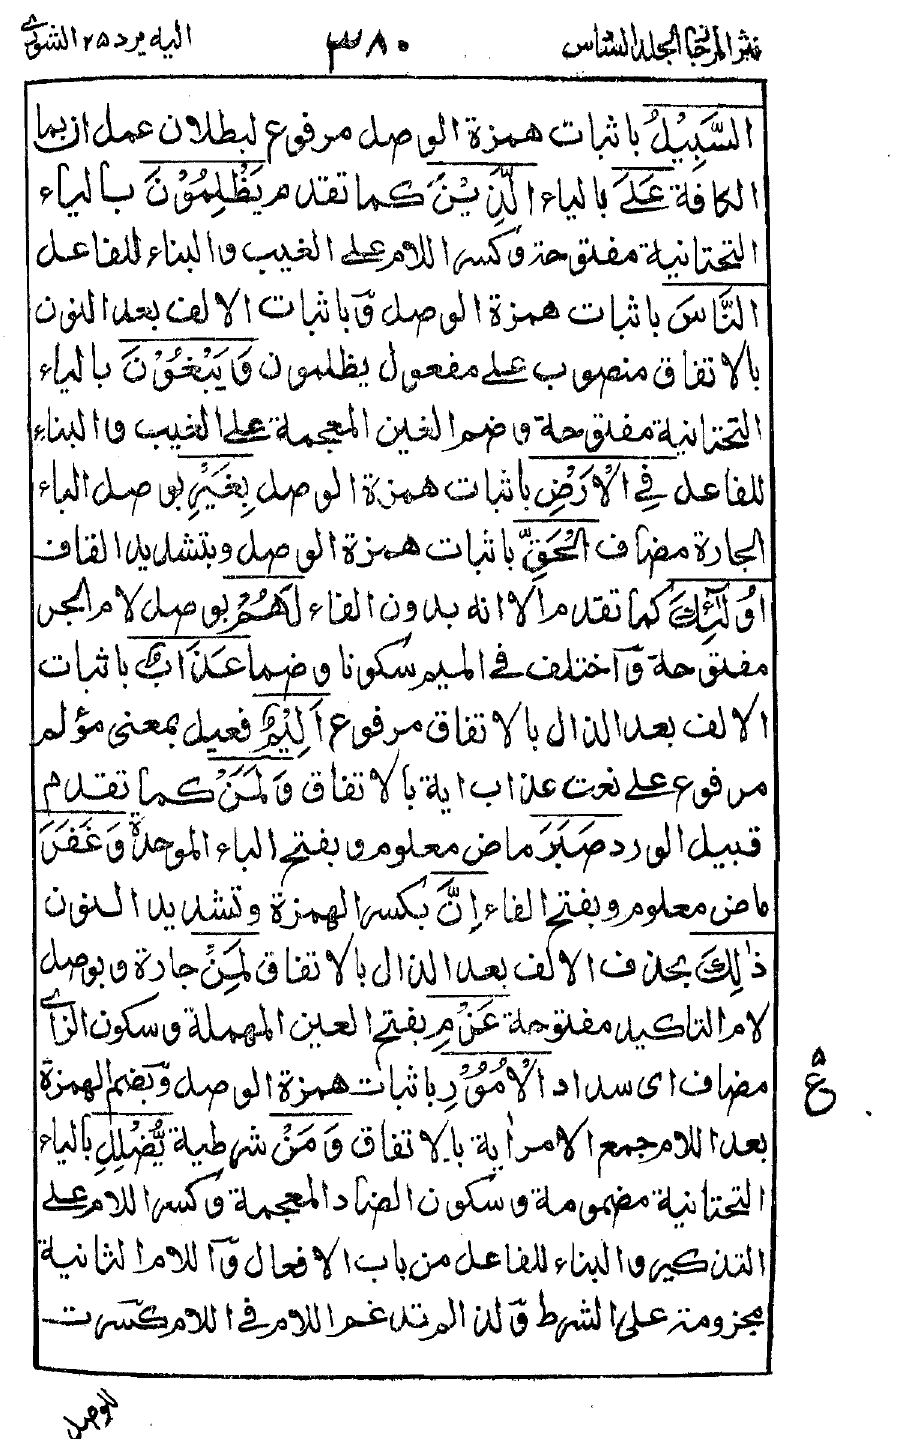 نثر المرجان الجلد السادس ٣٨٠ اليه يرد ٢٥ الشورى
السَّبِيْلُ باثبات همزة الوصل مرفوع لبطلان عمل ان بما
الكافة عَلَى بالياء الَّذِيْنَ كما تقدم يَظْلِمُوْنَ بالياء
التحتانية مفتوحة وكسر اللام على الغيب والبناء للفاعل
النَّاسَ باثبات همزة الوصل وباثبات الالف بعد النون
بالاتفاق منصوب على مفعول يظلمون وَيَبْغُوْنَ بالياء
التحتانية مفتوحة وضم الغين المعجمة على الغيب والبناء
للفاعل فِي الْاَرْضِ باثبات همزة الوصل بِغَيْرِ بوصل الباء
الجارة مضاف الْحَقِّ باثبات همزة الوصل وبتشديد القاف
اُولٰٓئِكَ كما تقدم الا انه بدون الفاء لَهُمْ بوصل لام الجر
مفتوحة واختلف في الميم سكونا وضما عَذَابٌ باثبات
الالف بعد الذال بالاتفاق مرفوع اَلِيْمٌ فعيل بمعنى مؤلم
مرفوع على نعت عذاب اية بالاتفاق وَلَمَنْ كما تقدم
قبيل الورد صَبَرَ ماض معلوم وبفتح الباء الموحدة وَغَفَرَ
ماض معلوم وبفتح الفاء اِنَّ بكسر الهمزة وتشديد النون
ذٰلِكَ بحذف الالف بعد الذال بالاتفاق لَمِنْ جارة وبوصل
لام التاكيد مفتوحة عَزْمِ بفتح العين المهملة وسكون الزاى
مضاف اى سداد الْاُمُوْرِ باثبات همزة الوصل وبضم الهمزة
بعد اللام جمع الامر اية بالاتفاق وَمَنْ شرطية يُّضْلِلِ بالياء
التحتانية مضمومة وسكون الضاد المعجمة وكسر اللام على
التذكير والبناء للفاعل من باب الافعال واللام الثانية
مجزومة على الشرط ولذا لم تدغم اللام في اللام كسرت
للوصل
ع